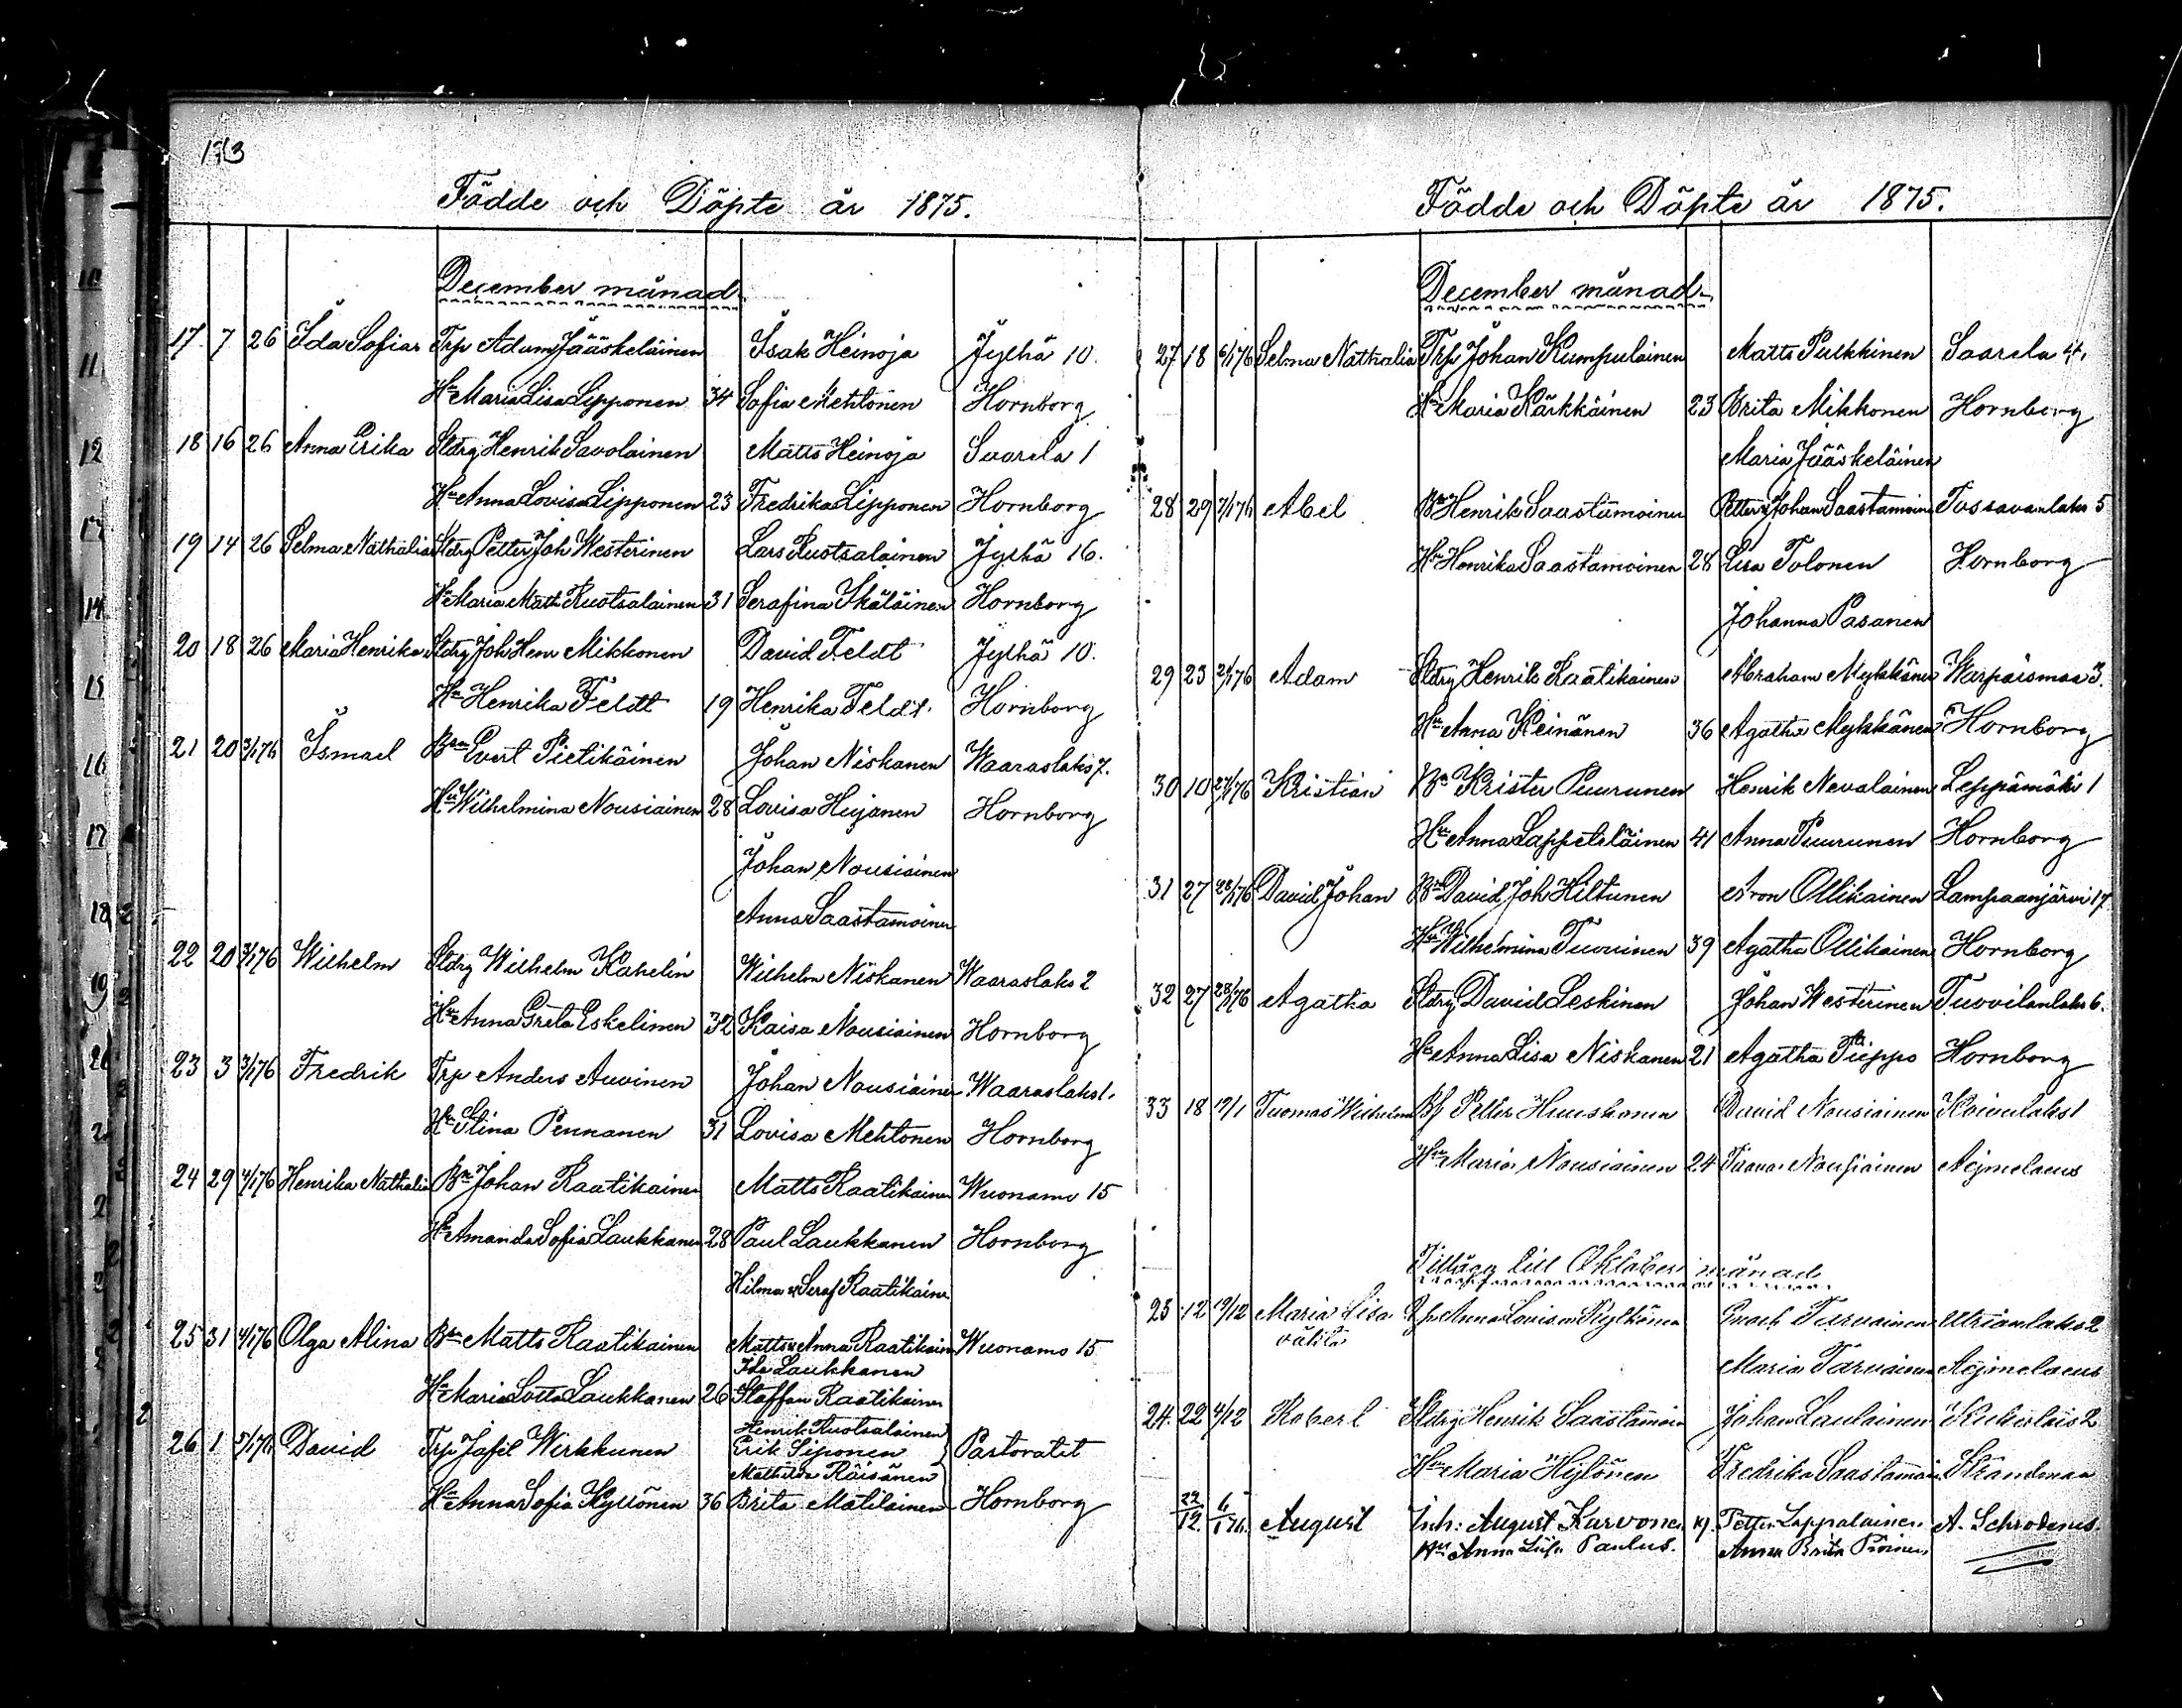 Födde och Döpte år 1875.
December månad
17. 7 26 Ida Sofia Trp Adam Jääskeläinen Isak Heinoja Jylhä 10.
Hu Maria Lisa Lipponen 34 Sofia Mehtonen Hornborg
18 16 26 Anna Erika Sldrg Henrik Savolainen Matts Heinoja Saarela 1
Hu Anna Lovisa Lipponen 23 Fredrika Lipponen Hornborg
19 14 26 Selma Nathalia Sldrg Petter Joh Westerinen Lars Ruotsalainen Jylhä 16.
Hu Maria Math Ruotsalainen 31 Serafina Ikäläinen Hornborg
20 18 26 Maria Henrika Sldrg Joh Henr Mikkonen David Feldt Jylhä 10.
Hu Henrika Feldt 19 Henrika Feldt. Hornborg
21 20 3/1 76 Ismael Bn Evert Pietikäinen Johan Niskanen Waaraslaks 7.
Hu Wilhelmina Nousiainen 28 Lovisa Hujanen Hornborg
Johan Nousiainen
Anna Saastamoinen
22 20 3/1 76 Wilhelm Sldrg Wilhelm Kahelin Wilhelm Niskanen Waaraslaks 2
Hu Anna Greta Eskelinen 32 Kaisa Nousiainen Hornborg
23 3 3/1 76 Fredrik Trp Anders Auvinen Johan Nousiainen Waaraslaks 1.
Hu Stina Pennanen 31 Lovisa Mehtonen Hornborg
24 29 4/1 76 Henrika Nathalia Bn Johan Raatikainen Matts Raatikainen Wuonamo 15
Hu Amanda Sofia Laukkanen 28 Paul Laukkanen Hornborg
Hilma & Seraf Raatikainen
25 31 4/1 76 Olga Alina Bn Matts Raatikainen Matts & Anna Raatikainen Wuonamo 15
Ida Laukkanen
Hu Maria Lotta Laukkanen 26 Staffan Raatikainen
Henrik Ruotsalainen
26 1 5/1 76 David Trp Jafet Wirkkunen Erik Siponen Pastoratet
Mathilda Räisänen
Hu Anna Sofia Kyllönen 36 Brita Matilainen Hornborg
Födde och Döpte år 1875.
December månad
27 18 6/1 76 Selma Nathalia Trp Johan Kumpulainen Matts Pulkkinen Saarela 4.
Hu Maria Kärkkäinen 23 Brita Mikkonen Hornborg
Maria Jääskeläinen
28 29 7/1 76 Abel Bn Henrik Saastamoinen Petter & Johan Saastamoinen Tossavanlaks 5
Hu Henrika Saastamoinen 28 Lisa Tolonen Hornborg
Johanna Pasanen
29 23 21/1 76 Adam Sldrg Henrik Raatikainen Abraham Mykkänen Warpaismaa 3.
Hu Anna Heinänen 36 Agatha Mykkänen Hornborg
30 10 27/1 76 Kristian Bn Krister Puurunen Henrik Nevalainen Leppämäki 1
Hu Anna Lappeteläinen 41 Anna Puurunen Hornborg
31 27 28/1 76 David Johan Bn David Joh Hiltunen Aron Ollikainen Lampaanjärvi 17
Hu Wilhelmina Tuovinen 39 Agatha Ollikainen Hornborg
32 27 28/1 76 Agatha Sldrg David Leskinen Johan Westerinen Tuovilanlaks 6.
Hu Anna Lisa Niskanen 21 Agatha Tieppo Hornborg
33 18 19/1 Tuomas Wilhelm Bf Petter Huuskonen David Nousiainen Koivulaks 1
Hu Maria Nousiainen 24 Nousiainen Aejmelaeus
Tillägg till Oktober månad
23 12 19/12 Maria Lisa Anna Lovisa Kylkönen Enoch Tarvainen Utrianlaks 2
oäkta
Maria Tarvainen Aejmelaeus
24. 22 4/12 Robert Sldrg Henrik Saastamoin Johan Laulainen
Hu Maria Hylönen Fredrika Saastamoin Strandman
22/12. 6/1 76. August Inh: August Karvonen Petter Lappalainen A. Schroderus.
Hu Anna Lisa Paulus. Anna Brita